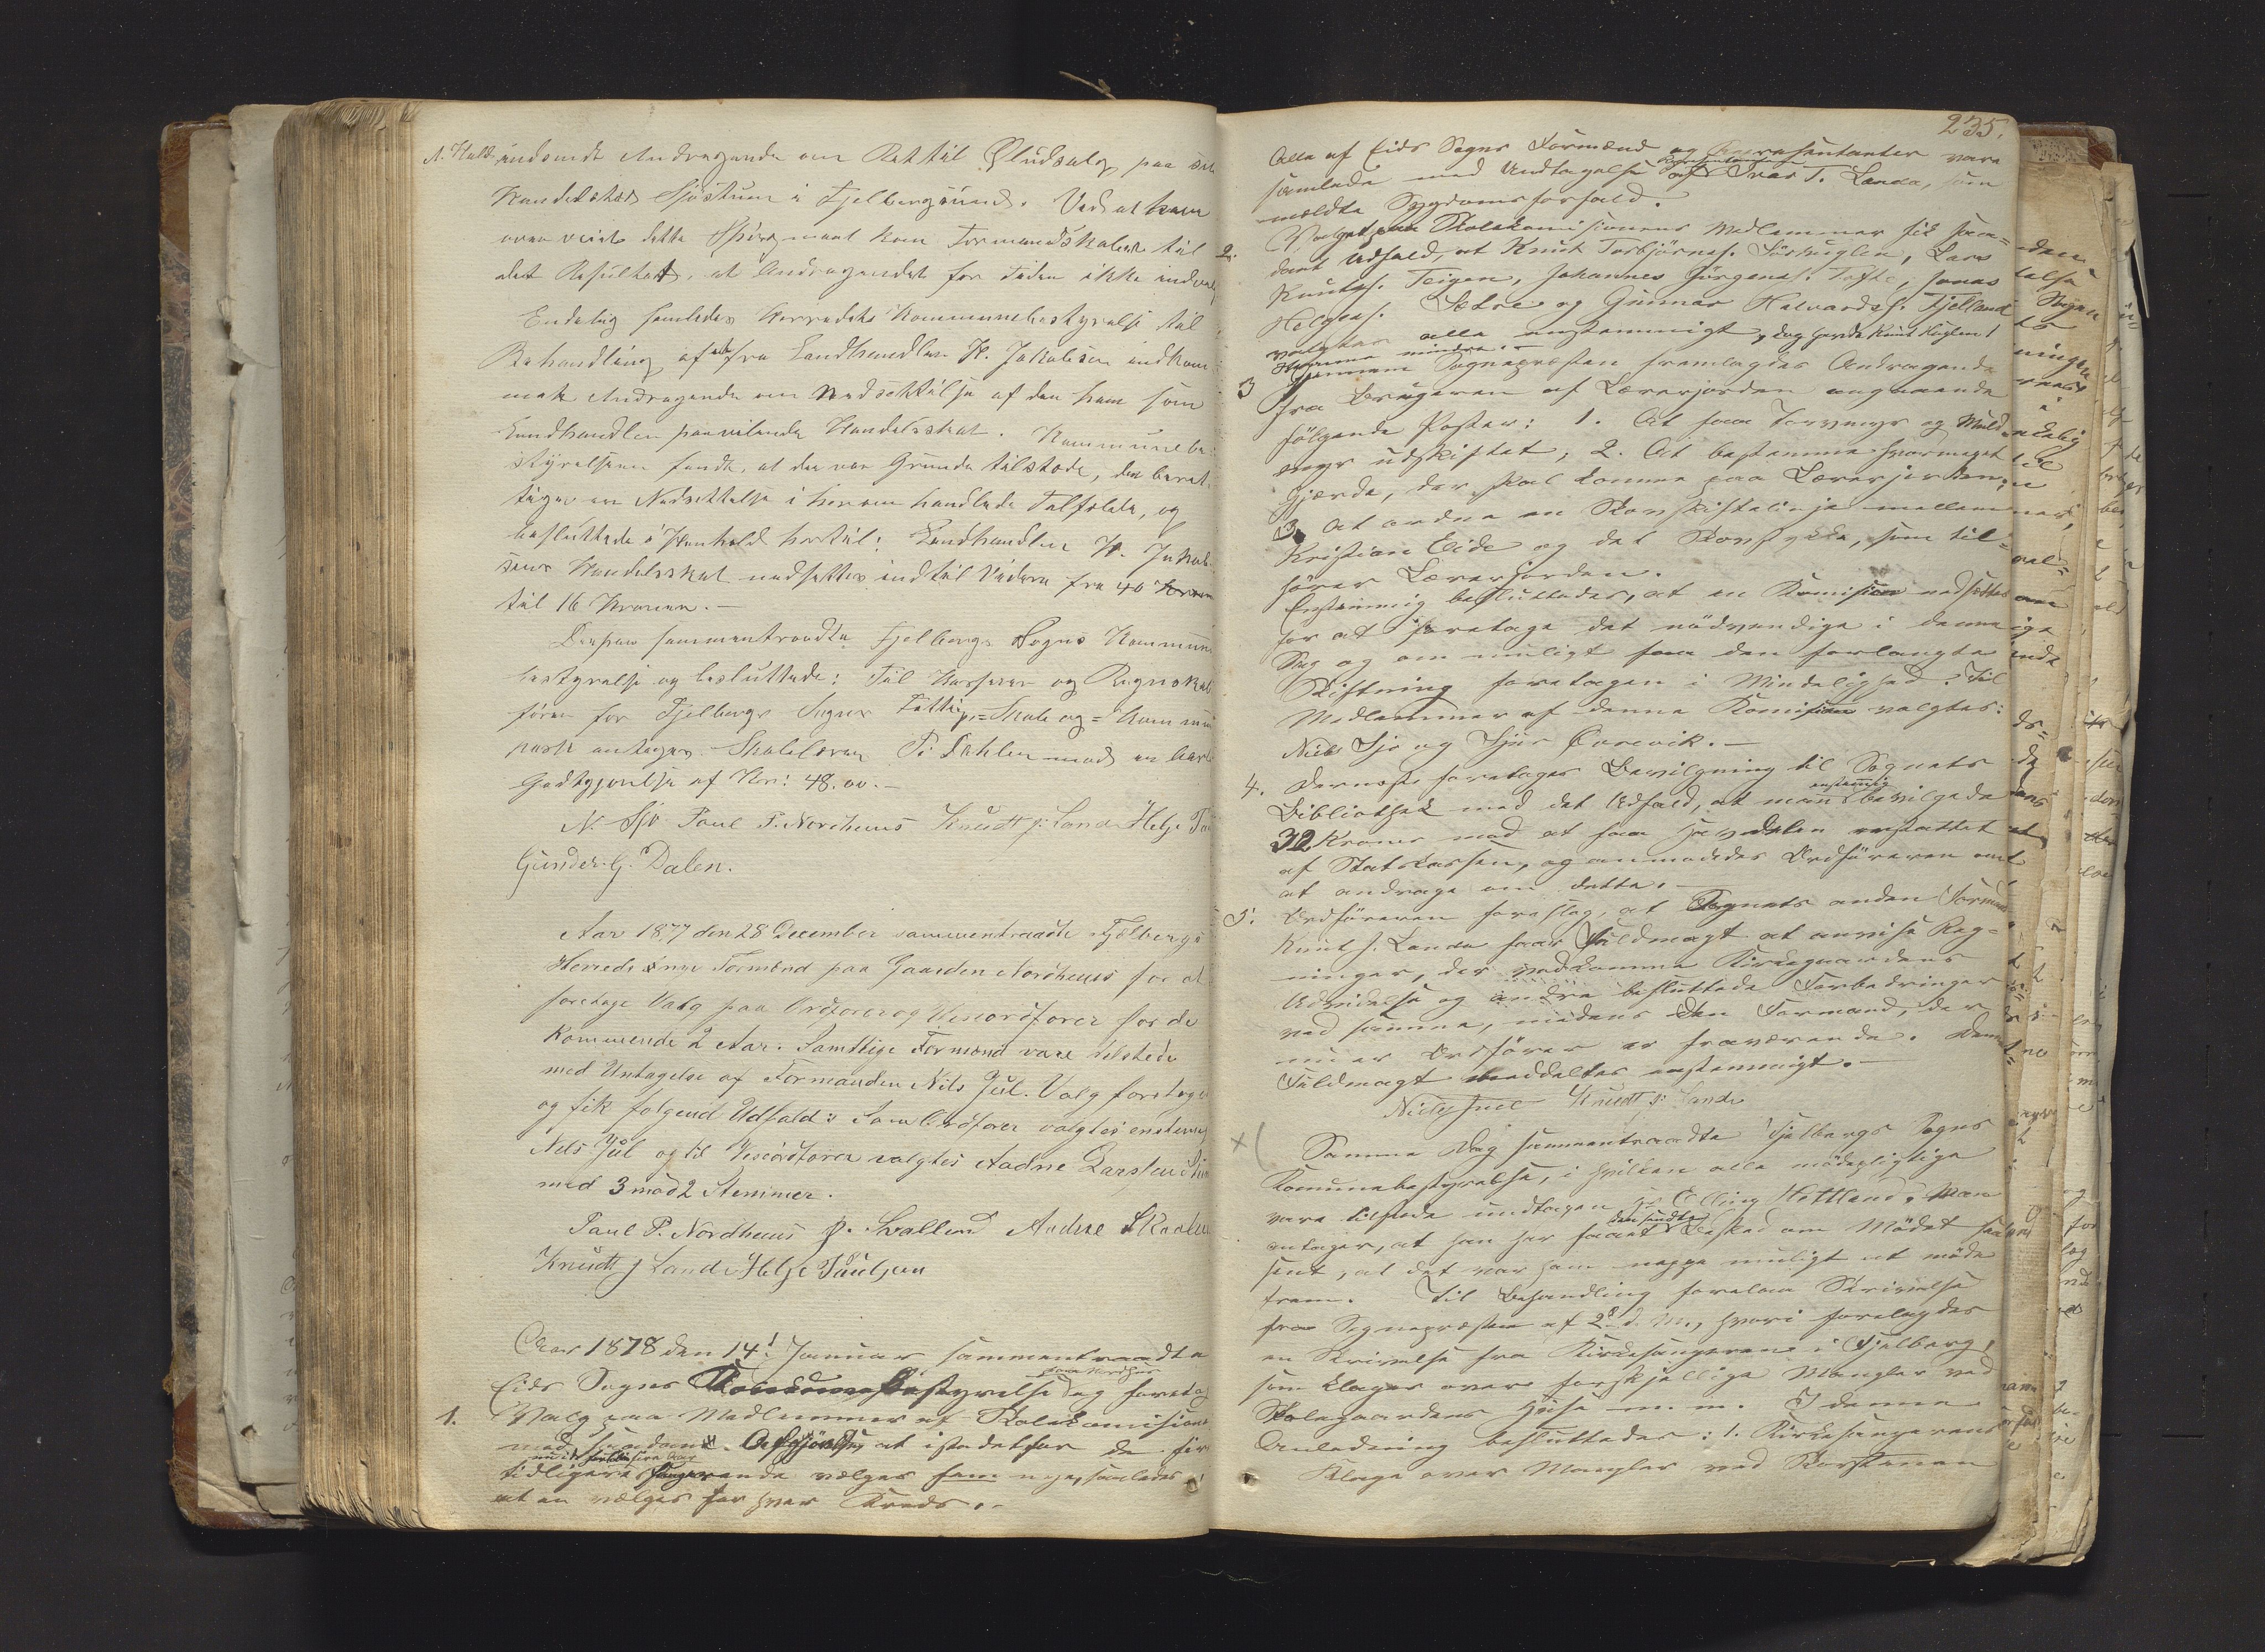 A. Huldr. indsendt Andragende om Ret til Øludsalg paa sit
Handelssted Sjøstrum i Fjelbergsund. Ved at have
overveiet dette Spørgsmaal kom Formandskabet til
det Resultat, at Andragendet for Tiden ikke
Endelig samledes Herredets Kommunebestyrelse til
Behandling af et fra Landhandler H. Jakobsen indkom
met Andragende om Nedsættelse af den ham som
Landhandler paavilende Handelsskat. Kommunebe-
styrelsen fandt, at der var Grunde tilstede, der beret-
tiger en Nedsættelse i herom handlede Talfolelse, og
besluttede i Henhold hertil: Landhandler H. Jakob-
sens Handelsskat nedsættes indtil Videre fra 40 Kroner
til 16 Kroner.—
Derpaa sammentraadte Fjelbergs Sogns Kommune
bestyrelse og besluttede: Til Kasserer og Regnskab
fører for Fjelbergs Sogns Fattig-, Skole og Kommune
kasse antages Skolelærer P. Dahlen mod en aarlig
Godtgjørelse af Kr: 48.00.—
N. Sjo Paul P. Nordhuus Knudt J: Lande Helje
Gunder. G. Dalen.
Aar 1877 den 28 December sammentraadte Fjælbergs
Herreds nye Formænd paa Gaarden Nordhuus for at
foretage Valg paa Ordfører og Viseordfører for de
Kommende 2 Aar. Samtlige Formænd vare tilstede
med Untagelse af Formanden Nils Jul. Valg foretoges
og fik følgend Udfald: Som Ordfører valgtes enstemmig
Nils Jul og til Viseordfører valgtes Aadne Larsen
med 3 mod 2 Stemmer.
Paul P. Nordhuus P. Svalland Aadne Skaalen
Knudt J Lande Helje Paulsen
Aar 1878 den 14d Januar sammentraadte
Eids Sogns Kommunebestyrelse paa Nordhus og foretog
1. Valg paa Medlemmer af Skolekomisionen
med saadant Afgjørelse, at istedetfor de fire
tidligere fungerende vælges fem nye, saaledes
at en vælges for hver Kreds.—
235.
Alle af Eids Sogns Formænd og Repræsentanter vare
samlede med Undtagelse af Repræsentanten Ivar T. Landa, som
meldte Sygdomsforfald.
2. Valget paa Skolekomisionens Medlemmer fik saa-
dant Udfald, at Knut Torbjørnes. Sørhuglen, Lars
Knuts. Teigen, Johannes Jørgens. Tofte, Jonas
Helges. Sætre og Gunnar Halvards. Fjelland
valgtes alle enstemmigt, dog havde Knut Huglen 1
Stemme mindre.—
3 Gjennem Sognepræsten fremlagdes Andragende
fra Brugeren af Lærerjorden angaaende
følgende Poster: 1. At faa Torvmyr og Muld-
myr udskiftet, 2. At bestemme hvormeget
Gjærde, der skal komme paa Lærerjorden,
3. At ordne en Skovskiftelinje mellem
Kristian Eide og det Skovstykke, som til-
hører Lærerjorden.
Enstemmig besluttedes, at en Komision nedsættes
for at foretage det nødvendige i denne
Sag og om muligt faa den forlangte
Skiftning foretagen i Mindelighed. Til
Medlemmer af denne Komision valgtes:
Niels Sjo og SjurØrevik.—
4. Dernæst foretages Bevilgning til Sognets
Bibliothek med det Udfald, at man enstemmig bevilgede
32 Kroner mod at faa Halvdelen erstattet
af Statskassen, og anmodedes Ordføreren om
at andrage om dette.—
5. Ordføreren foreslog, at Sognets anden Formand
Knut J. Landa faar Fuldmagt at anvise Reg-
ninger, der vedkomme Kirkegaardens
Udvidelse og andre besluttede Forbedringer
ved samme, medens den Formand, der
nu er Ordfører er fraværende. Denne
Fuldmagt meddeltes enstemmigt.—
Niels Juel Knudt J: Lande
Samme Dag sammentraadte Fjelbergs Sogns
Komunebestyrelse, i hvilken alle mødepligtige
vare tilstede undtagen Hr Elling Hettland; Man
antager, at han har faaet den sendte Besked om Mødet saa
sent, at det var ham neppe muligt at møde
frem. Til Behandling forelaa Skrivelse
fra Sognepræsten af 2d d. M., hvori forelagdes
en Skrivelse fra Kirkesangeren i Fjelberg,
som klager over forskjellige Mangler ved
Skolegaardens Huse m. m. I denne
Anledning besluttedes: 1. Kirkesangerens
Klage over Mangler ved Skorstenen